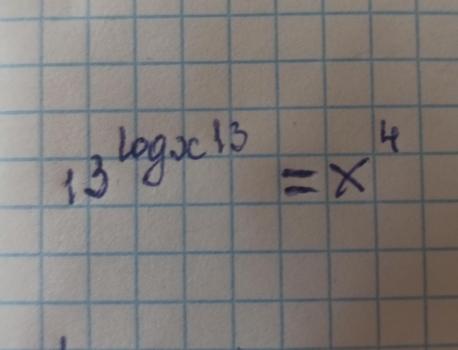 13^{log_x 13} = x^4